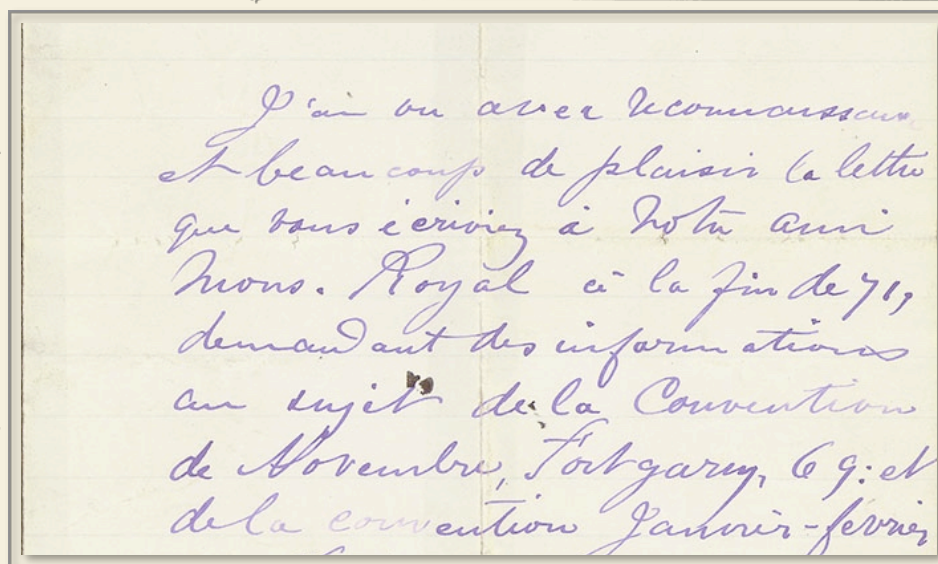 J'ai vu avec reconnaissance
et beaucoup de plaisir la lettre
que vous écriviez à notre ami
Mons. Royal à la fin de 71,
demandant des informations
au sujet de la Convention
de Novembre, Fort garry, 69: et
de la convention Janvier-février